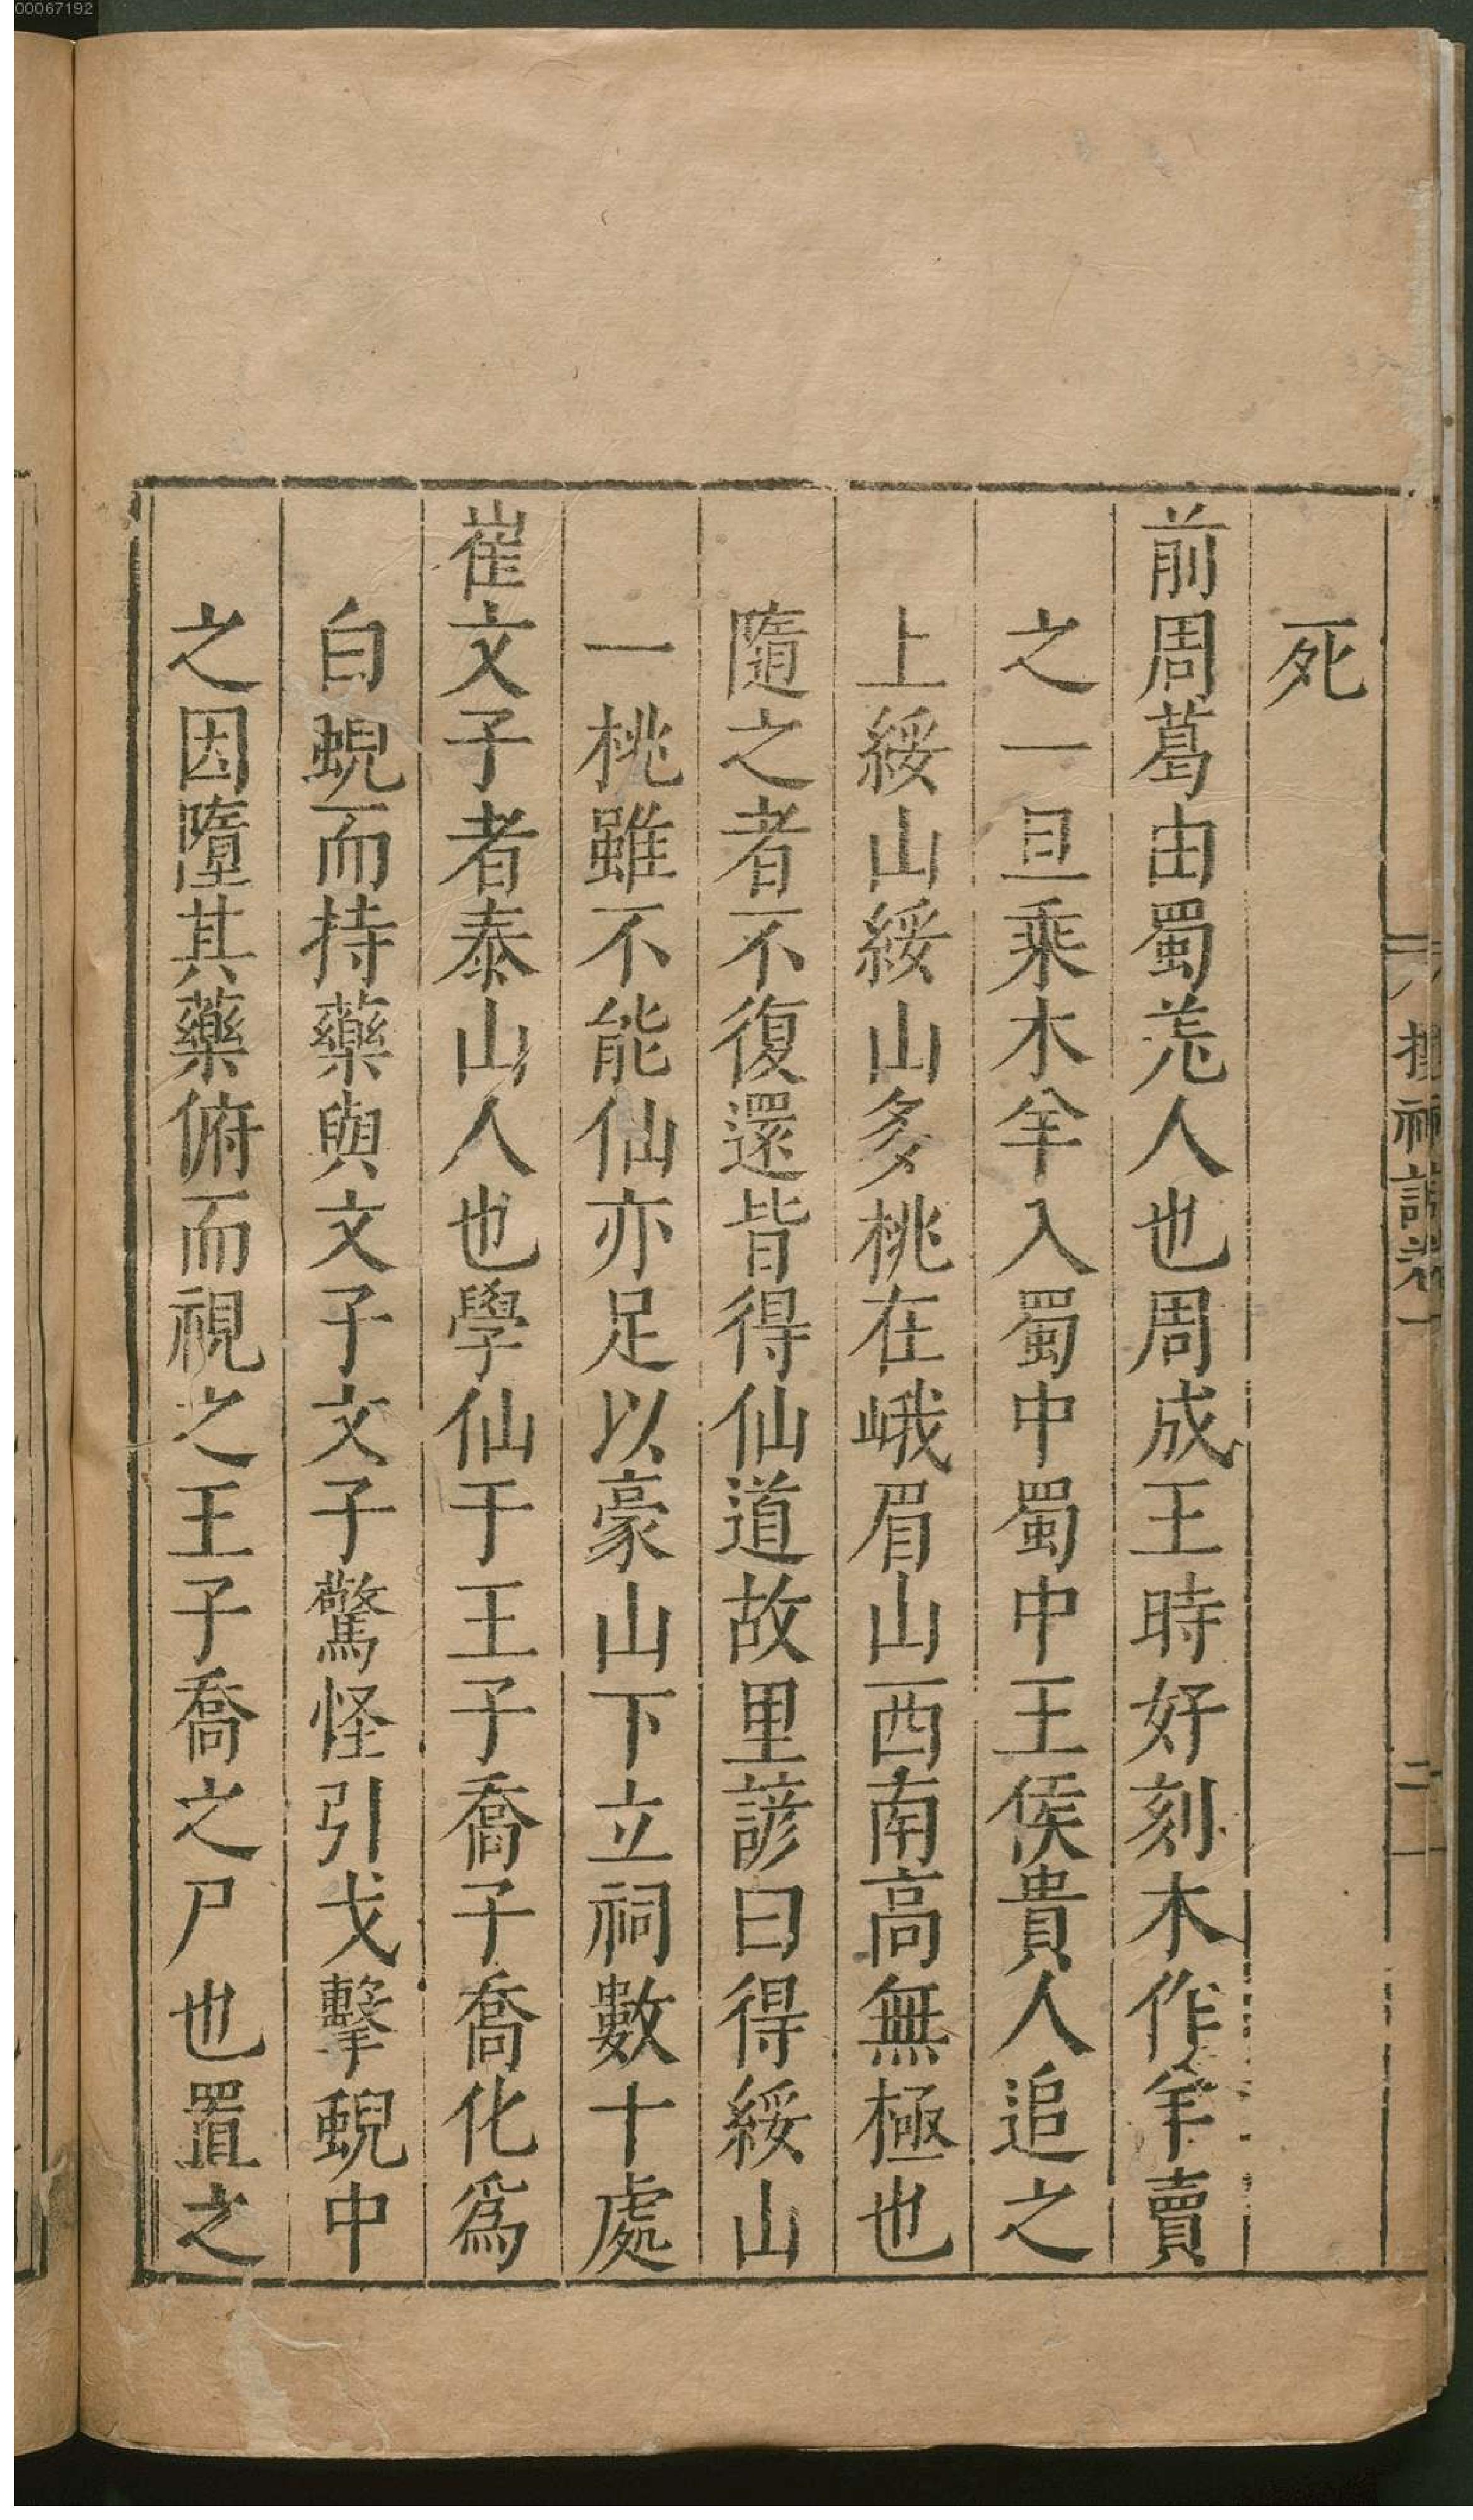 00067192
死
前周葛由蜀羌人也周成王時好刻木作羊賣
之一旦乘木羊入蜀中蜀中王侯貴人追之
上綏山綏山多桃在峨眉山西南高無極也
隨之者不復還皆得仙道故里諺曰得綏山
一桃雖不能仙亦足以豪山下立祠數十處
崔文子者泰山人也學仙于王子喬子喬化爲
白蜺而持藥與文子文子驚怪引戈擊蜺中
之因墮其藥俯而視之王子喬之尸也置之